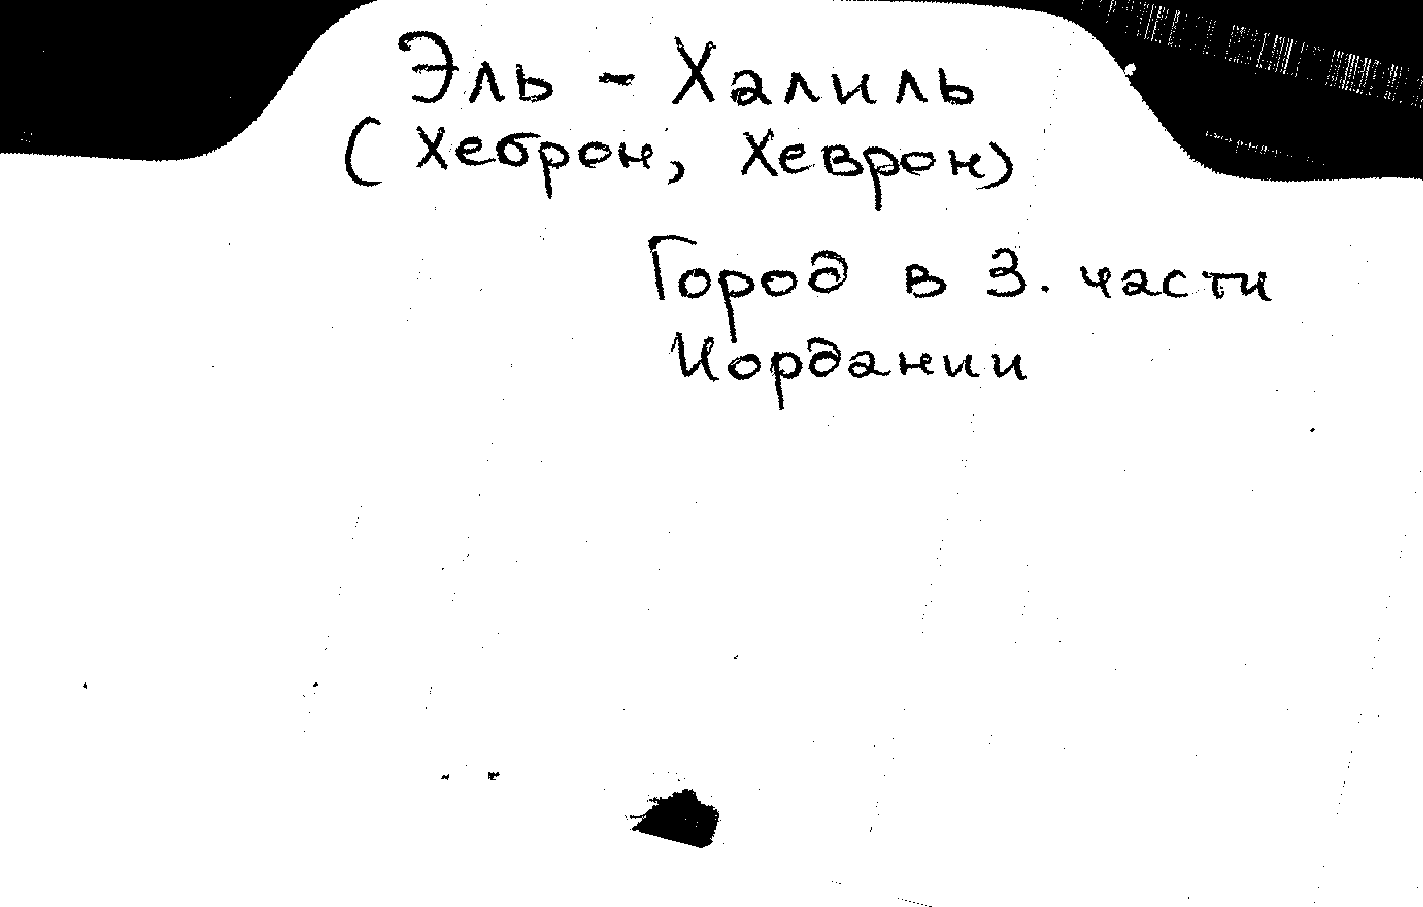 Эль - Халиль
(Хеброн, Хеврон)
Город в З. части
Иордании